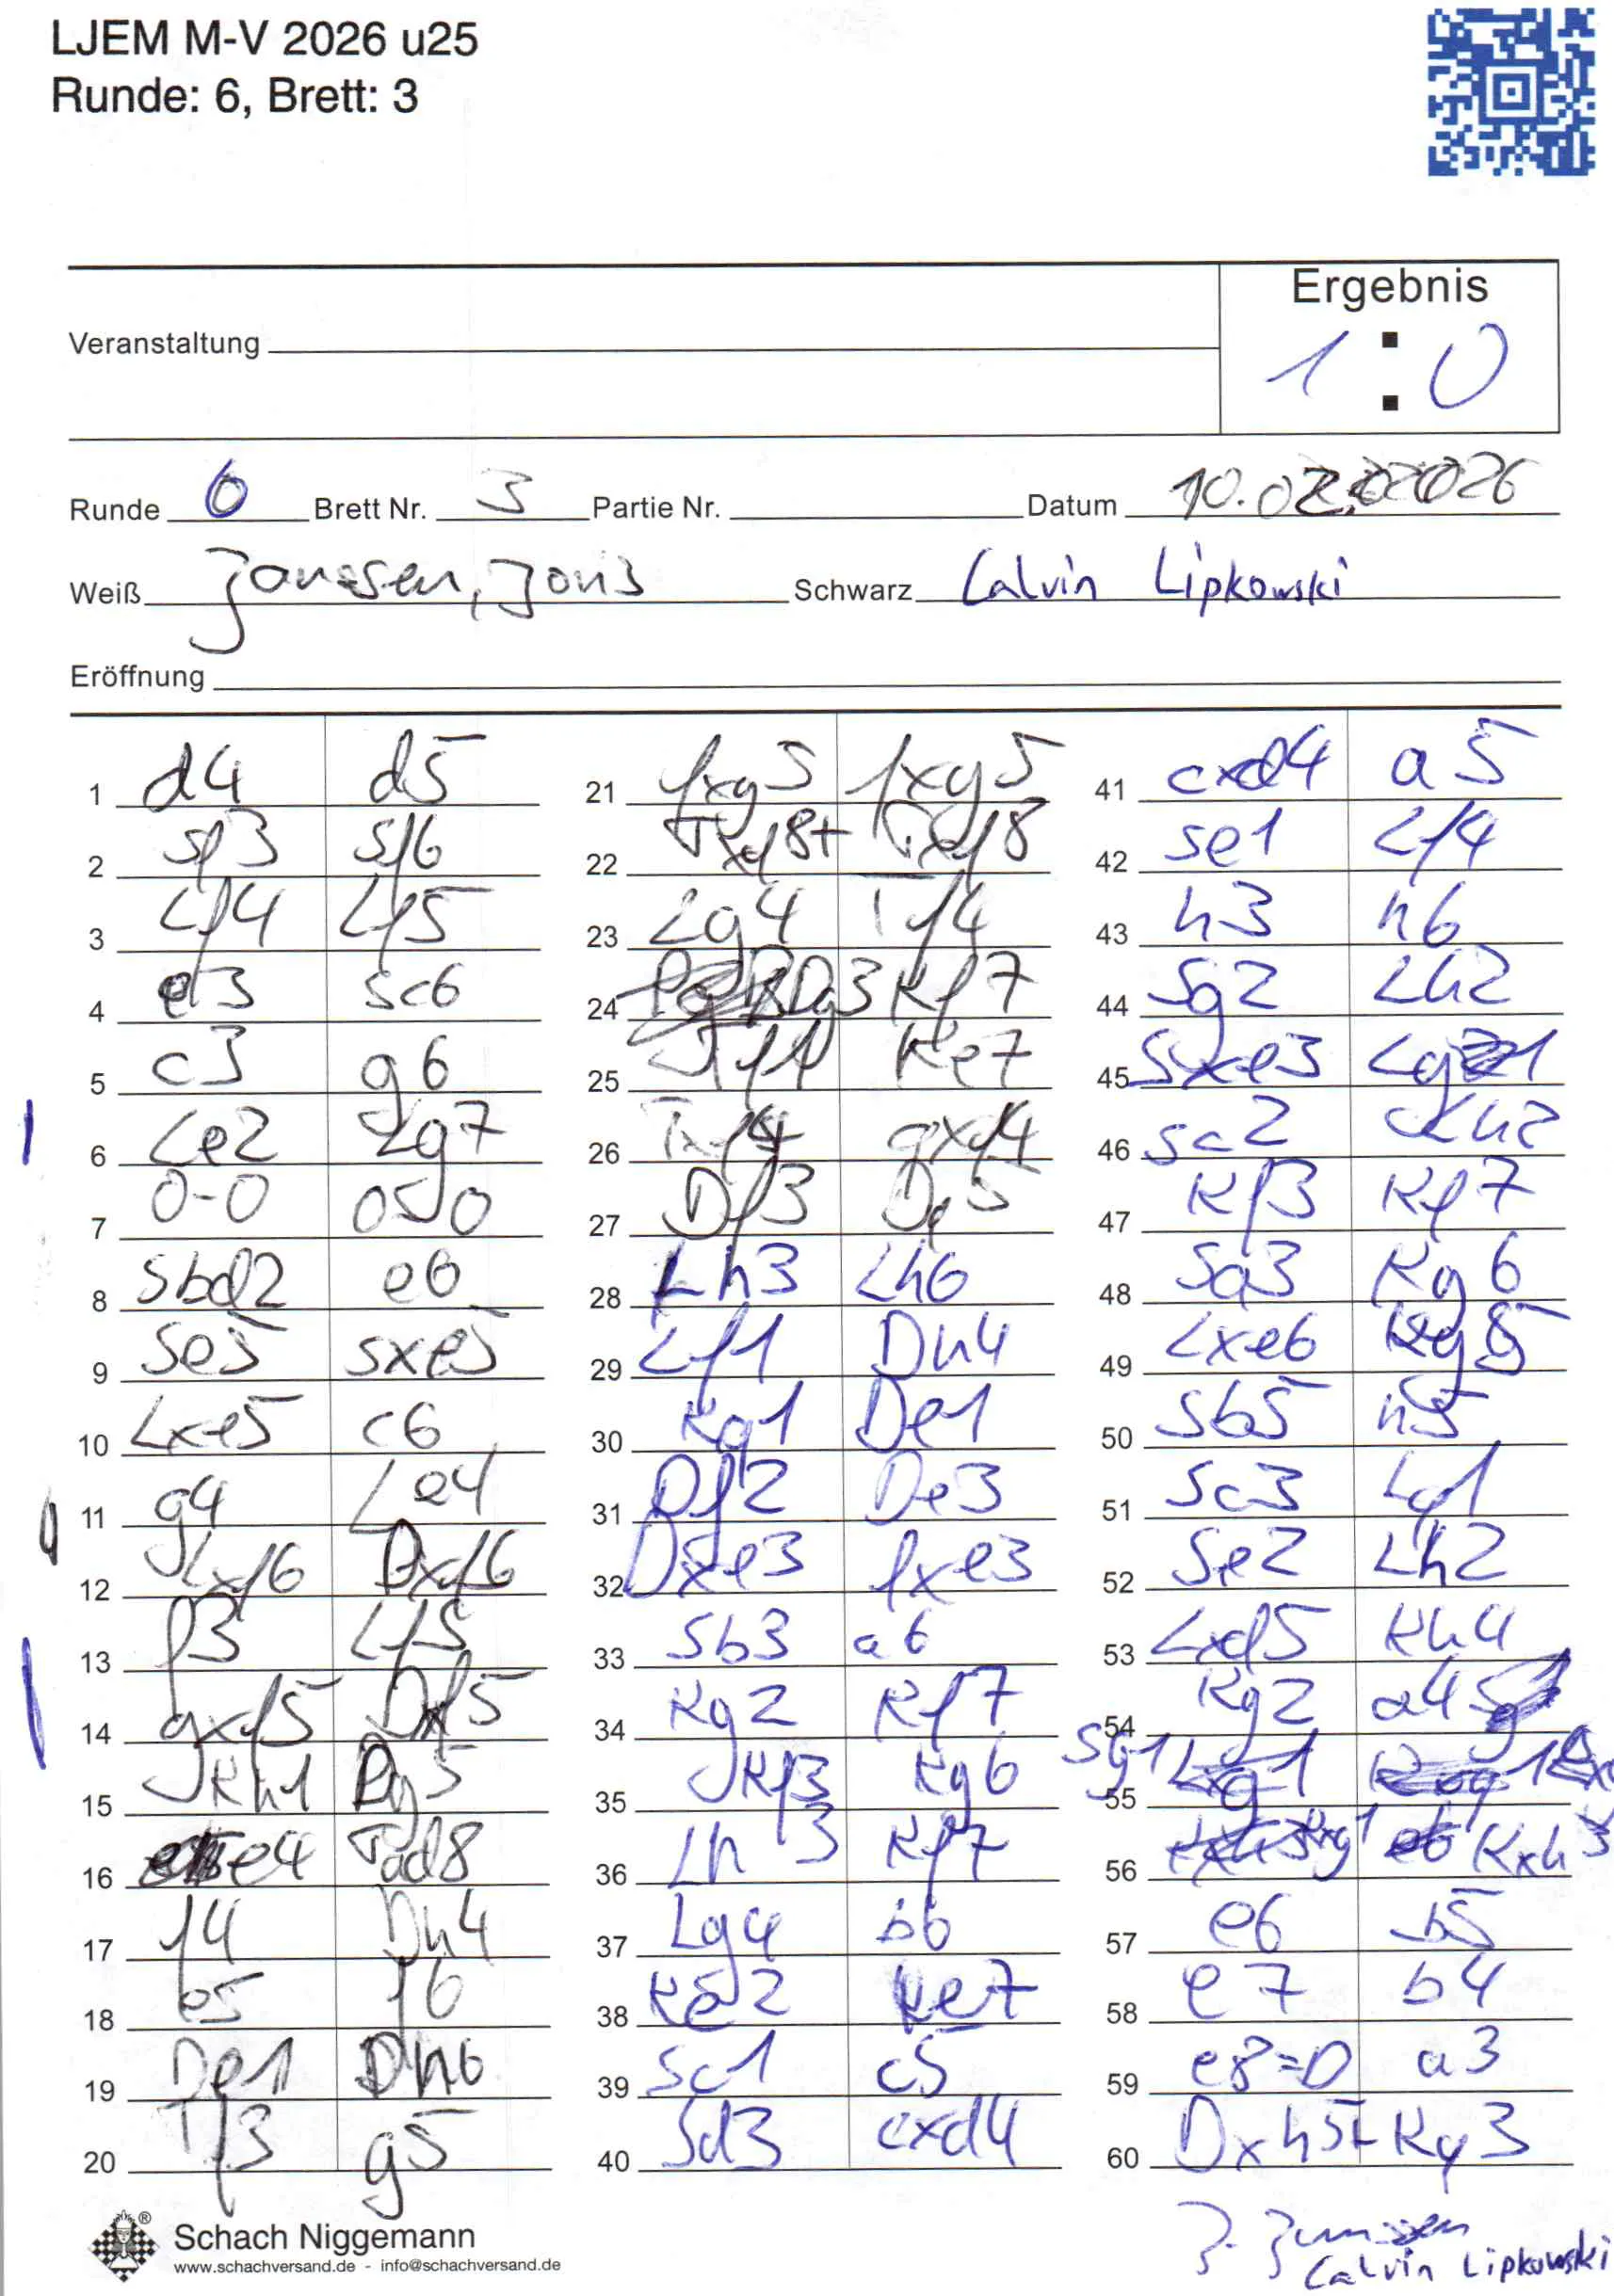 LJEM M-V 2026 u25
Runde: 6, Brett: 3
Ergebnis
Veranstaltung
1 : 0
Runde 6 Brett Nr. 3 Partie Nr. Datum 10.02.2026
Weiß Janssen, Joris Schwarz Calvin Lipkowski
Eröffnung
1 d4 d5
2 Sf3 Sf6
3 Lf4 Lf5
4 e3 Sc6
5 c3 g6
6 Le2 Lg7
7 0-0 0-0
8 Sbd2 e6
9 Se5 Sxe5
10 Lxe5 c6
11 g4 Le4
12 Lxf6 Dxf6
13 f3 Lf5
14 gxf5 Dxf5
15 Kh1 Dg5
16 e4 Tad8
17 f4 Dh4
18 e5 f6
19 De1 Dh6
20 Tf3 g5
21 fxg5 fxg5
22 Txf8+ Txf8
23 Lg4 Tf4
24 Dg3 Kf7
25 Tf1 Ke7
26 Txf4 gxf4
27 Df3 Dg5
28 Lh3 Lh6
29 Lf1 Dh4
30 Kg1 De1
31 Df2 De3
32 Dxe3 fxe3
33 Sb3 a6
34 Kg2 Kf7
35 Kf3 Kg6
36 Lh3 Kf7
37 Lg4 b6
38 Ke2 Ke7
39 Sc1 c5
40 Sd3 cxd4
41 cxd4 a5
42 Se1 Lf4
43 h3 h6
44 Sg2 Lh2
45 Sxe3 Lg1
46 Sc2 Lh2
47 Kf3 Kf7
48 Sa3 Kg6
49 Lxe6 Kg5
50 Sb5 h5
51 Sc3 Lg1
52 Se2 Lh2
53 Lxd5 Kh4
54 Kg2 a4
55 Sg1
56 Kxg1 Kxh3
57 e6 b5
58 e7 b4
59 e8=D a3
60 Dxh5+ Kg3
Schach Niggemann
www.schachversand.de - info@schachversand.de
J. Janssen
Calvin Lipkowski